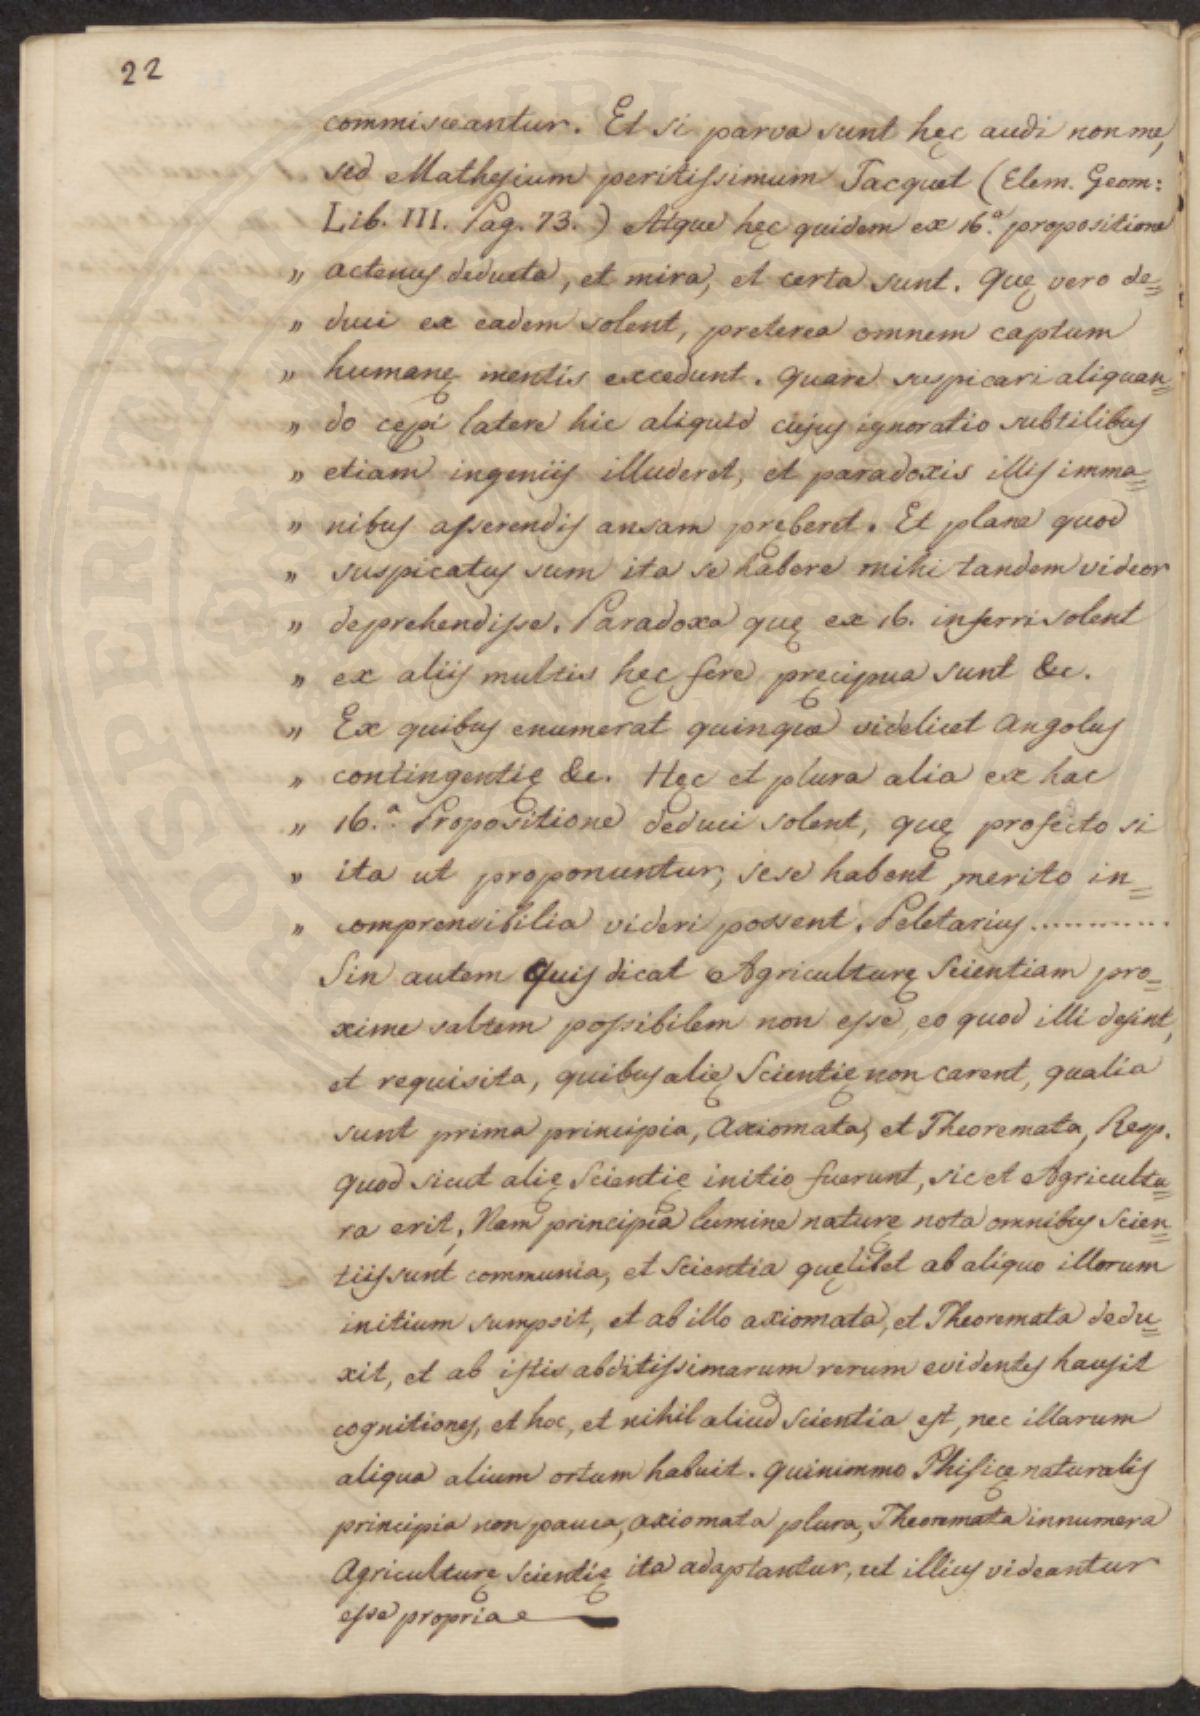 22
commisceantur. Et si parva sunt hęc audi non me,
sed Mathesium peritissimum Tacquet (Elem. Geom:
Lib. III. Pag. 73.) Atque hęc quidem ex 16.ª propositione
„ actenus deducta, et mira, et certa sunt. Quę vero de=
„ duci ex eadem solent, preterea omnem captum
„ humanę mentis excedunt. Quare suspicari aliquan=
„ do cępi latere hic aliquid cujus ignoratio subtilibus
„ etiam ingeniis illuderet, et paradoxis illis imma=
„ nibus asserendis ansam pręberet. Et plane quod
„ suspicatus sum ita se habere mihi tandem videor
„ deprehendisse. Paradoxa quę ex 16. inferri solent
„ ex aliis multis hęc fere pręcipua sunt &c.
„ Ex quibus enumerat quinque videlicet Angolus
„ contingentię &c. Hęc et plura alia ex hac
„ 16.ª Propositione deduci solent, quę profecto si
„ ita ut proponuntur, sese habent merito in=
„ comprensibilia videri possent. Peletarius............
Sin autem Quis dicat Agriculturę Scientiam pro=
xime saltem possibilem non esse, eo quod illi desint,
et requisita, quibus alię Scientię non carent, qualia
sunt prima principia, Axiomata, et Theoremata, Resp.
quod sicut alię Scientię initio fuerunt, sic et Agricultu=
ra erit, Nam principia lumine naturę nota omnibus Scien=
tiis sunt communia, et Scientia quęlibet ab aliquo illorum
initium sumpsit, et ab illo axiomata, et Theoremata dedu=
xit, et ab istis abditissimarum rerum evidentes hausit
cognitiones, et hoc, et nihil aliud Scientia est, nec illarum
aliqua alium ortum habuit. Quinimmo Phisicę naturalis
principia non pauca, axiomata plura, Theoremata innumera
Agriculturę Scientię ita adaptantur, ut illius videantur
esse propria